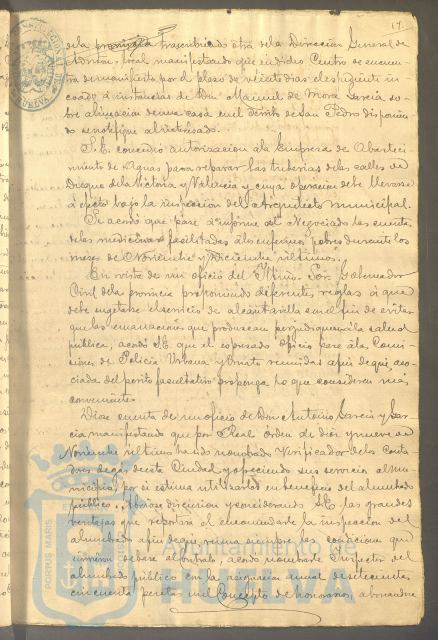 17.
de la provincia trascribiendo otra de la Direccion General de
Admon. local manifestando que en dicho Centro se encuen-
tra de manifiesto por el plazo de veinte dias el espediente in-
coado á instancias de Don Manuel de Mora Garcia so-
bre alineacion de una casa en el de San Pedro disponien-
do se notifique al interesado.
S.E. concedió autorizacion á la Empresa de Abasteci-
miento de Aguas para reparar las tuberias de las calles de
Duque de la Victoria y Valencia y cuya operacion debe llevarse
á efecto bajo la inspeccion del Arquitecto municipal.
Se acordó que pase á informe del Negociado las cuentas
de las medicinas facilitadas á los enfermos pobres durante los
meses de Noviembre y Diciembre últimos.
En vista de un oficio del Iltmo. Sor. Gobernador
Civil de la provincia proponiendo diferentes reglas á que
debe sugetarse el servicio de alcantarilla con el fin de evitar
que las emanaciones que produzcan perjudiquen á la salud
pública, acordó S.E. que el espresado oficio pase á la Comi-
siones de Policia Urbana y Ornato reunidas a fin de que aso-
ciada del perito facultativo proponga lo que consideren mas
conveniente.
Diose cuenta de un oficio de Don Antonio Garcia y Gar-
cia manifestando que por Real orden de diez y nueve de
Noviembre último ha sido nombrado Verificador de los Conta-
dores de gas de esta Ciudad y ofreciendo sus servicios al mu-
nicipio por si estima utilizarlos en beneficio del alumbrado
público. Abrese discusion y considerando S.E. las grandes
ventajas que reportará el encomendarle la inspeccion del
alumbrado a fin de que reuna siempre las condiciones que
sirvieron de base al contrato, acordó nombrarle Inspector del
alumbrado público con la asignacion anual de setecientas
cincuenta pesetas en el Concepto de honorarios, abonandose
Ayuntamiento de
HUELVA
PORTUS MARIS
HUELVA